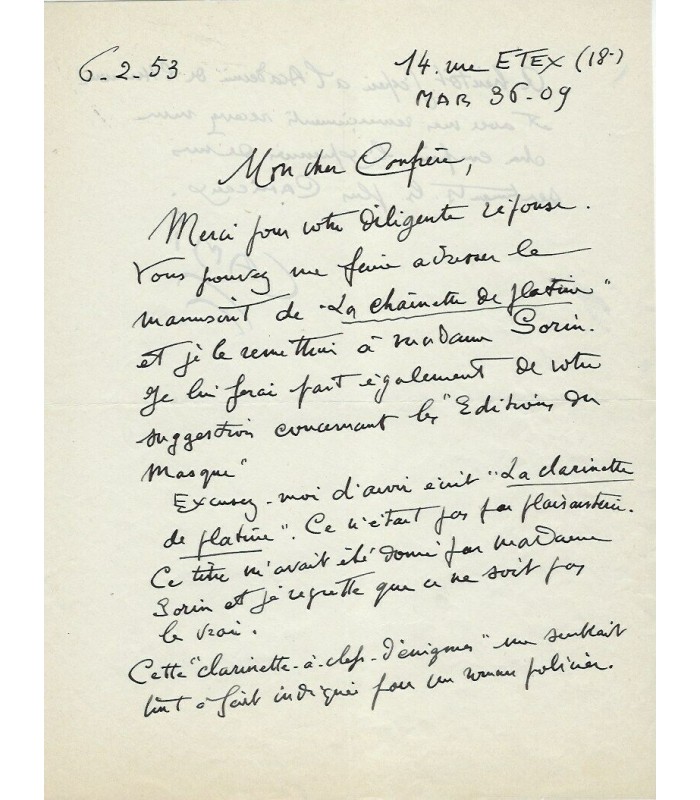 6.2.53
14. rue ETEX (18e)
MAR 36-09
Mon cher Confrère,
Merci pour votre diligente réponse.
Vous pouvez me faire adresser le
manuscrit de "La chaînette de platine"
et je le remettrai à madame Sorin.
Je lui ferai part également de votre
suggestion concernant les "Editions du
Masque"
Excusez-moi d'avoir écrit "La clarinette
de platine". Ce n'était pas par plaisanterie.
Ce titre m'avait été donné par madame
Sorin et je regrette que ce ne soit pas
le vrai.
Cette "clarinette-à-clefs-d'énigmes" me semblait
tout à fait indiquée pour un roman policier.